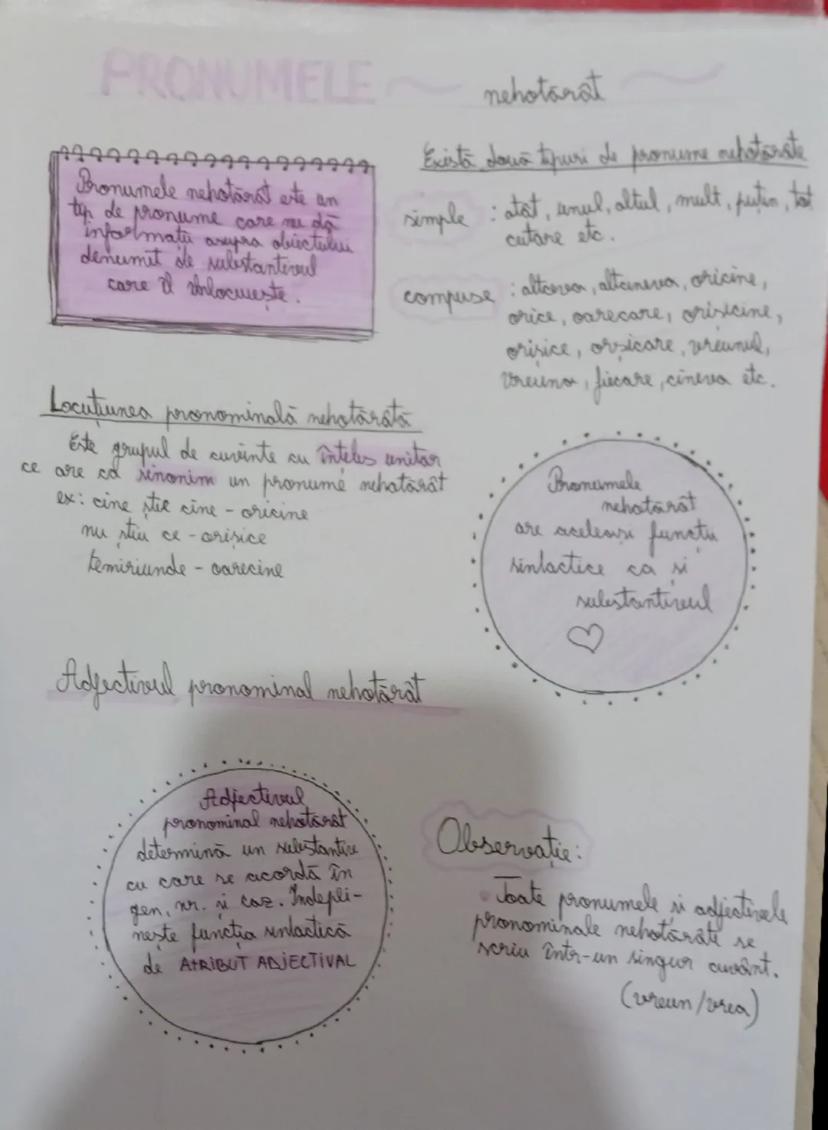 PRONUMELE nehotărât
Pronumele nehotărât este un
tip de pronume care nu dă
informații asupra obiectului
denumit de substantivul
care îl înlocuiește.
Există două tipuri de pronume nehotărâte
simple : atât, unul, altul, mult, puțin, tot
cutare etc.
compuse : altceva, altcineva, oricine,
orice, oarecare, orișicine,
orișice, orșicare, vreunul,
vreuna, fiecare, cineva etc.
Locuțiunea pronominală nehotărâtă
Este grupul de cuvinte cu înțeles unitar
ce are ca sinonim un pronume nehotărât
ex: cine știe cine - oricine
nu știu ce - orișice
temiriunde - oarecine
Pronumele
nehotărât
are aceleași funcții
sintactice ca și
substantivul
Adjectivul pronominal nehotărât
Adjectivul
pronominal nehotărât
determină un substantiv
cu care se acordă în
gen, nr. și caz. Îndepli-
nește funcția sintactică
de ATRIBUT ADJECTIVAL
Observație:
Toate pronumele și adjectivele
pronominale nehotărâte se
scriu într-un singur cuvânt.
(vreun/vrea)